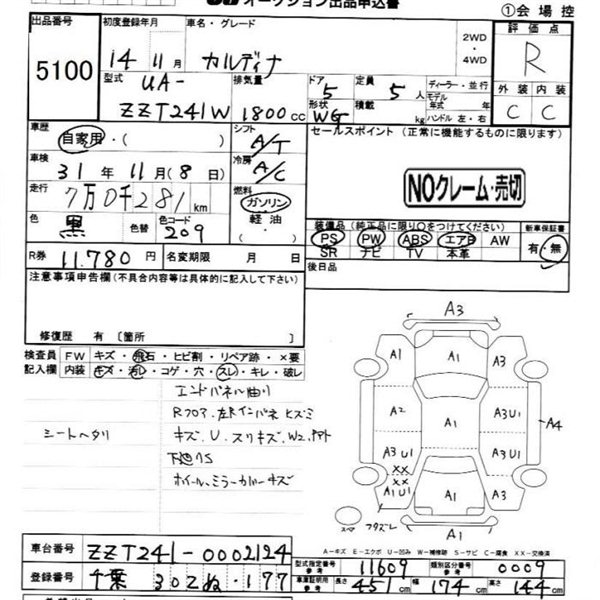 オークション出品申込書
①会場控
出品番号
5100
初度登録年月
14年11月
車名・グレード
カルディナ
2WD・4WD
評価点
R
型式
UA-ZZT241W
排気量
1800cc
ドア
5
形状
WG
定員
5人
積載
kg
ディーラー・並行
モデル年式 年
ハンドル 左・右
外装 内装
C C
車歴
自家用・( )
シフト
A/T
セールスポイント (正常に機能するものに限ります)
車検
31年11月(8日)
冷房
A/C
NOクレーム・売切
走行
7万0千281km
燃料
ガソリン
軽油
色
黒
色替
色コード
209
装備品(純正品に限り○をつけてください)
新車保証書
PS PW ABS エアB AW
SR ナビ TV 本革
有・無
R券
11,780円
名変期限 月 日
後日品
注意事項申告欄(不具合内容等は具体的に記入して下さい)
修復歴 有 [箇所 ]
検査員記入欄
FW キズ・飛石・ヒビ割・リペア跡・×要
内装 キズ・汚レ・コゲ・穴・スレ・キレ・破レ
エンドパネル曲り
Rフロア、左Rインパネヒズミ
シートヘタリ
キズ、U、スリキズ、W2、
ホイール、ミラーカバーキズ
A3
A1 A1 A1
A2 A1 A3U1 A4
A3U1 A3U1
XX
XX
A1U1 A1 A1U1
A1
スペア
A-キズ E-エクボ U-凹み W-補修跡 S-サビ C-腐食 XX-交換済
車台番号
ZZT241-0002124
登録番号
千葉 302ぬ・177
型式指定番号 参考
11609
類別区分番号 参考
0009
車庫証明用 参考
長さ 451cm
幅 174cm
高さ 144cm